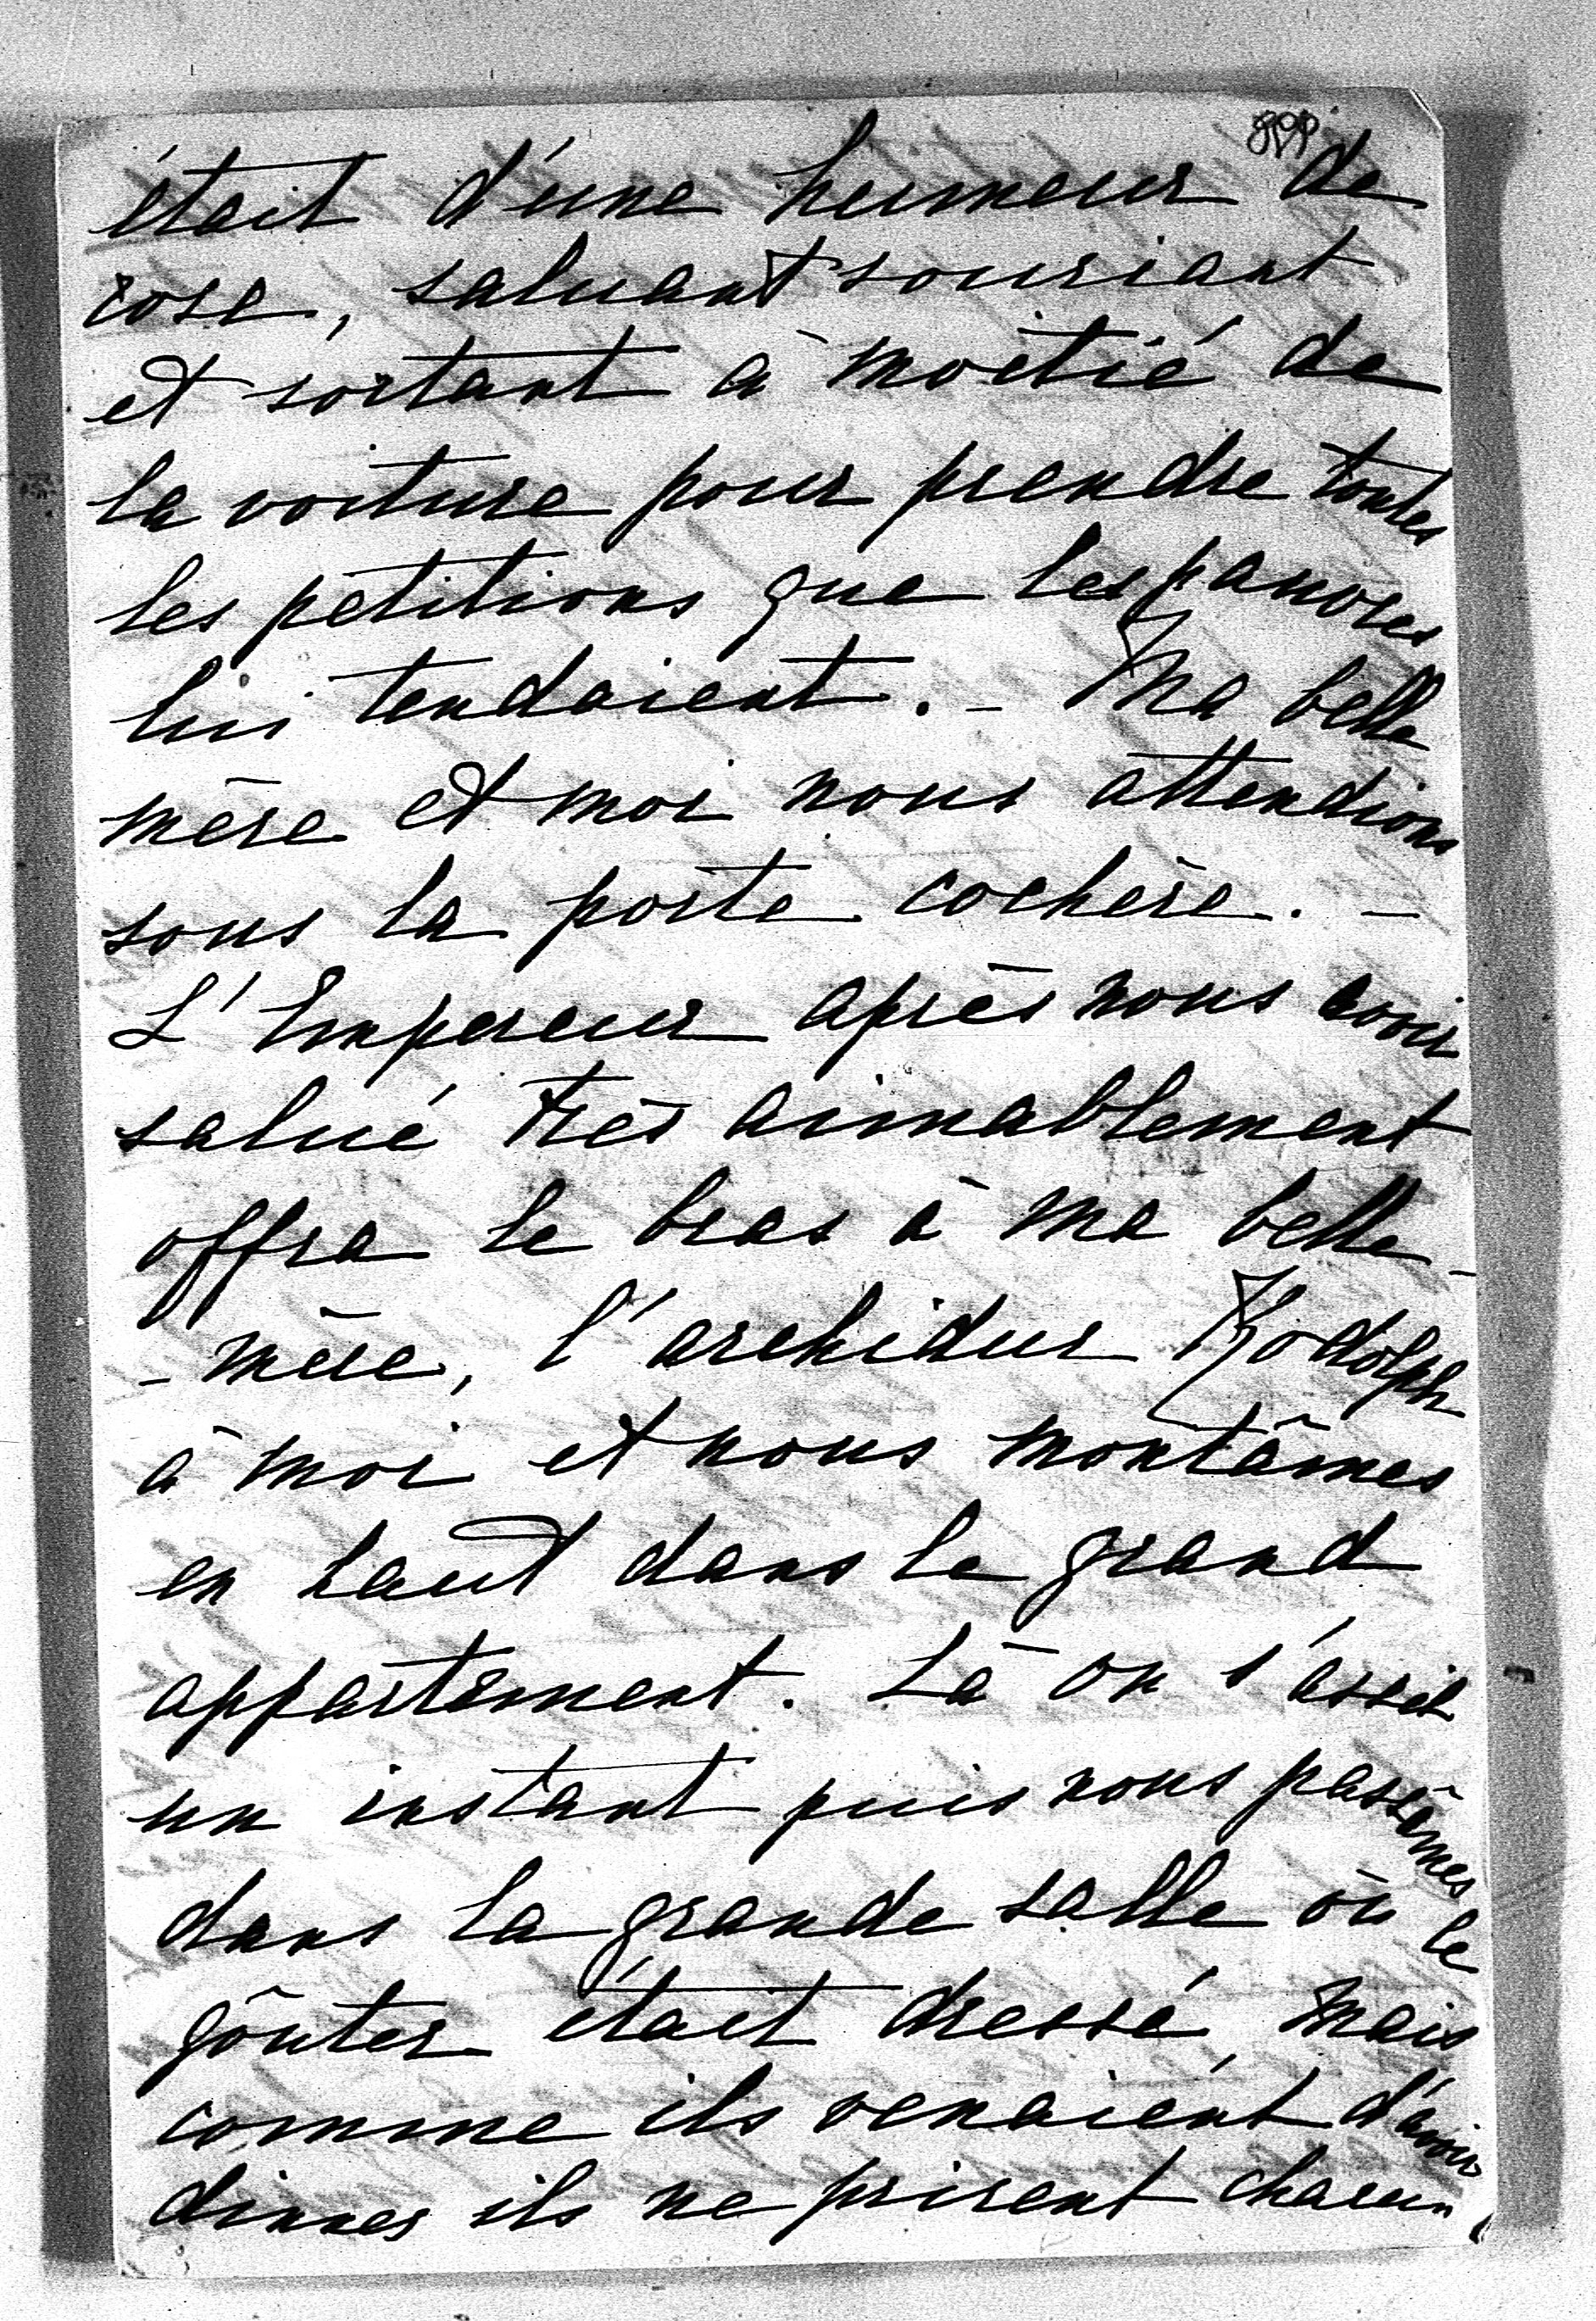 était d'une humeur de
rose, saluant souriant
et sortant à moitié de
la voiture pour prendre toutes
les petitions que les pauvres
lui tendaient. – Ma belle
mère et moi nous attendions
sous la porte cochère. –
L'Empereur après nous avoir
salué très aimablement
offra le bras à ma belle-
-mère, l'archiduc Rodolph
à moi et nous montâmes
en haut dans le grand
appartement. Là on s'assit
un instant puis nous passâmes
dans la grande salle où le
goûter était dressé mais
comme ils venaient d'avoir
dinner ils ne prirent chacun